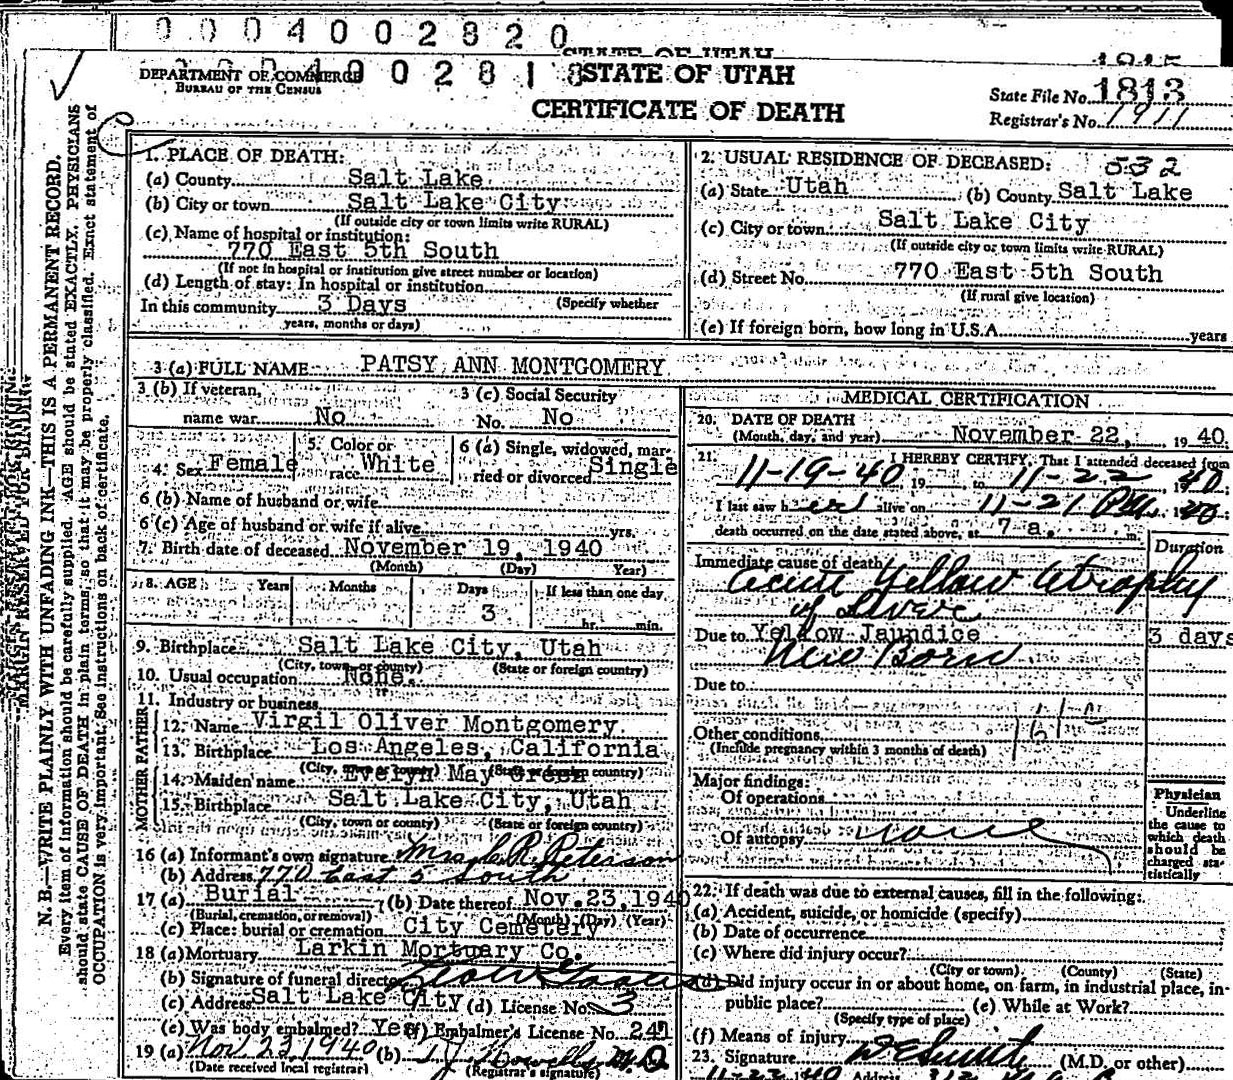 0004002820
STATE OF UTAH
1815
DEPARTMENT OF COMMERCE
BUREAU OF THE CENSUS
0004002818
STATE OF UTAH
CERTIFICATE OF DEATH
State File No. 1813
Registrar's No. 1911
N. B.—WRITE PLAINLY WITH UNFADING INK—THIS IS A PERMANENT RECORD.
Every item of information should be carefully supplied. AGE should be stated EXACTLY. PHYSICIANS
should state CAUSE OF DEATH in plain terms, so that it may be properly classified. Exact statement of
OCCUPATION is very important. See instructions on back of certificate.
MARGIN RESERVED FOR BINDING
1. PLACE OF DEATH:
(a) County Salt Lake
(b) City or town Salt Lake City
(If outside city or town limits write RURAL)
(c) Name of hospital or institution:
770 East 5th South
(If not in hospital or institution give street number or location)
(d) Length of stay: In hospital or institution
(Specify whether
In this community 3 Days
years, months or days)
2. USUAL RESIDENCE OF DECEASED: 532
(a) State Utah (b) County Salt Lake
(c) City or town Salt Lake City
(If outside city or town limits write RURAL)
(d) Street No. 770 East 5th South
(If rural give location)
(e) If foreign born, how long in U.S.A. years
3 (a) FULL NAME PATSY ANN MONTGOMERY
3 (b) If veteran,
name war No
3 (c) Social Security
No. No
4. Sex Female
5. Color or
race White
6 (a) Single, widowed, mar-
ried or divorced Single
6 (b) Name of husband or wife
6 (c) Age of husband or wife if alive yrs.
7. Birth date of deceased November 19, 1940
(Month) (Day) Year)
8. AGE Years Months Days If less than one day
3 hr. min.
9. Birthplace Salt Lake City, Utah
(City, town or county) (State or foreign country)
10. Usual occupation None.
11. Industry or business
FATHER
12. Name Virgil Oliver Montgomery
13. Birthplace Los Angeles, California
(City, town or county) (State or foreign country)
MOTHER
14. Maiden name Evelyn May Green
15. Birthplace Salt Lake City, Utah
(City, town or county) (State or foreign country)
16 (a) Informant's own signature Mrs. C. R. Peterson
(b) Address 770 East 5 South
17 (a) Burial (b) Date thereof Nov. 23, 1940
(Burial, cremation, or removal) (Month) (Day) (Year)
(c) Place: burial or cremation City Cemetery
18 (a) Mortuary Larkin Mortuary Co.
(b) Signature of funeral director
(c) Address Salt Lake City (d) License No. 3
(e) Was body embalmed? Yes (f) Embalmer's License No. 241
19 (a) Nov. 23, 1940 (b) T. J. Howells, M.D.
(Date received local registrar) (Registrar's signature)
MEDICAL CERTIFICATION
20. DATE OF DEATH
(Month, day, and year) November 22, 1940.
21. I HEREBY CERTIFY, That I attended deceased from
11-19-40 19 to 11-22 1940;
I last saw her alive on 11-21 PM 1940;
death occurred on the date stated above, at 7 a. m.
Duration
Immediate cause of death
Acute Yellow Atrophy
of Liver
Due to Yellow Jaundice 3 days
New Born
Due to
161-a
Other conditions
(Include pregnancy within 3 months of death)
Major findings:
Of operations
Of autopsy none
Physician
Underline
the cause to
which death
should be
charged sta-
tistically
22. If death was due to external causes, fill in the following:
(a) Accident, suicide, or homicide (specify)
(b) Date of occurrence
(c) Where did injury occur?
(City or town) (County) (State)
(d) Did injury occur in or about home, on farm, in industrial place, in
public place? (e) While at Work?
(Specify type of place)
(f) Means of injury
23. Signature (M.D. or other)
11-22-1940 Address